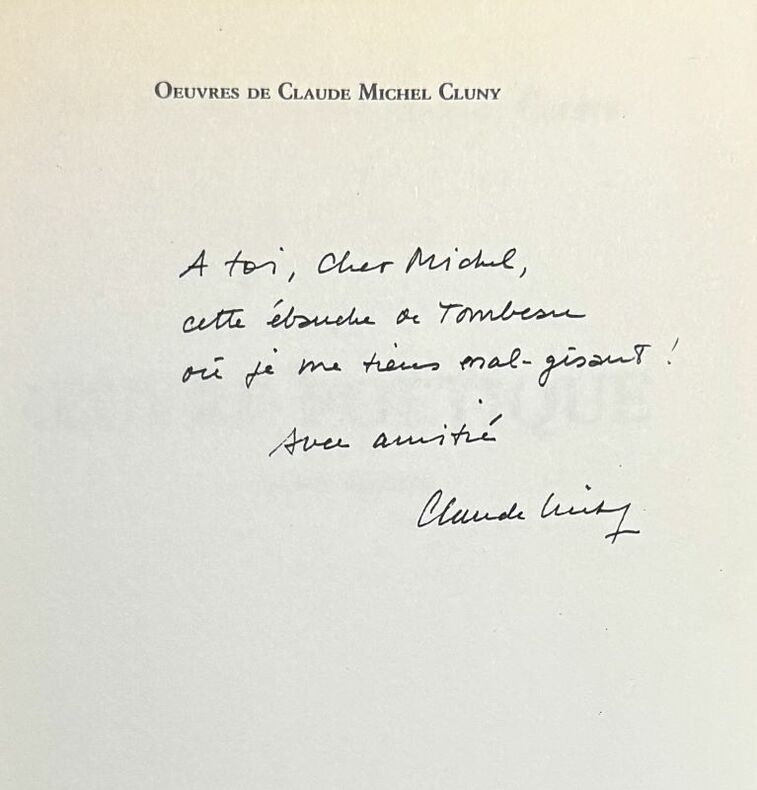 OEUVRES DE CLAUDE MICHEL CLUNY
A toi, Cher Michel,
cette ébauche de Tombeau
où je me tiens mal-gisant !
Avec amitié
Claude Cluny